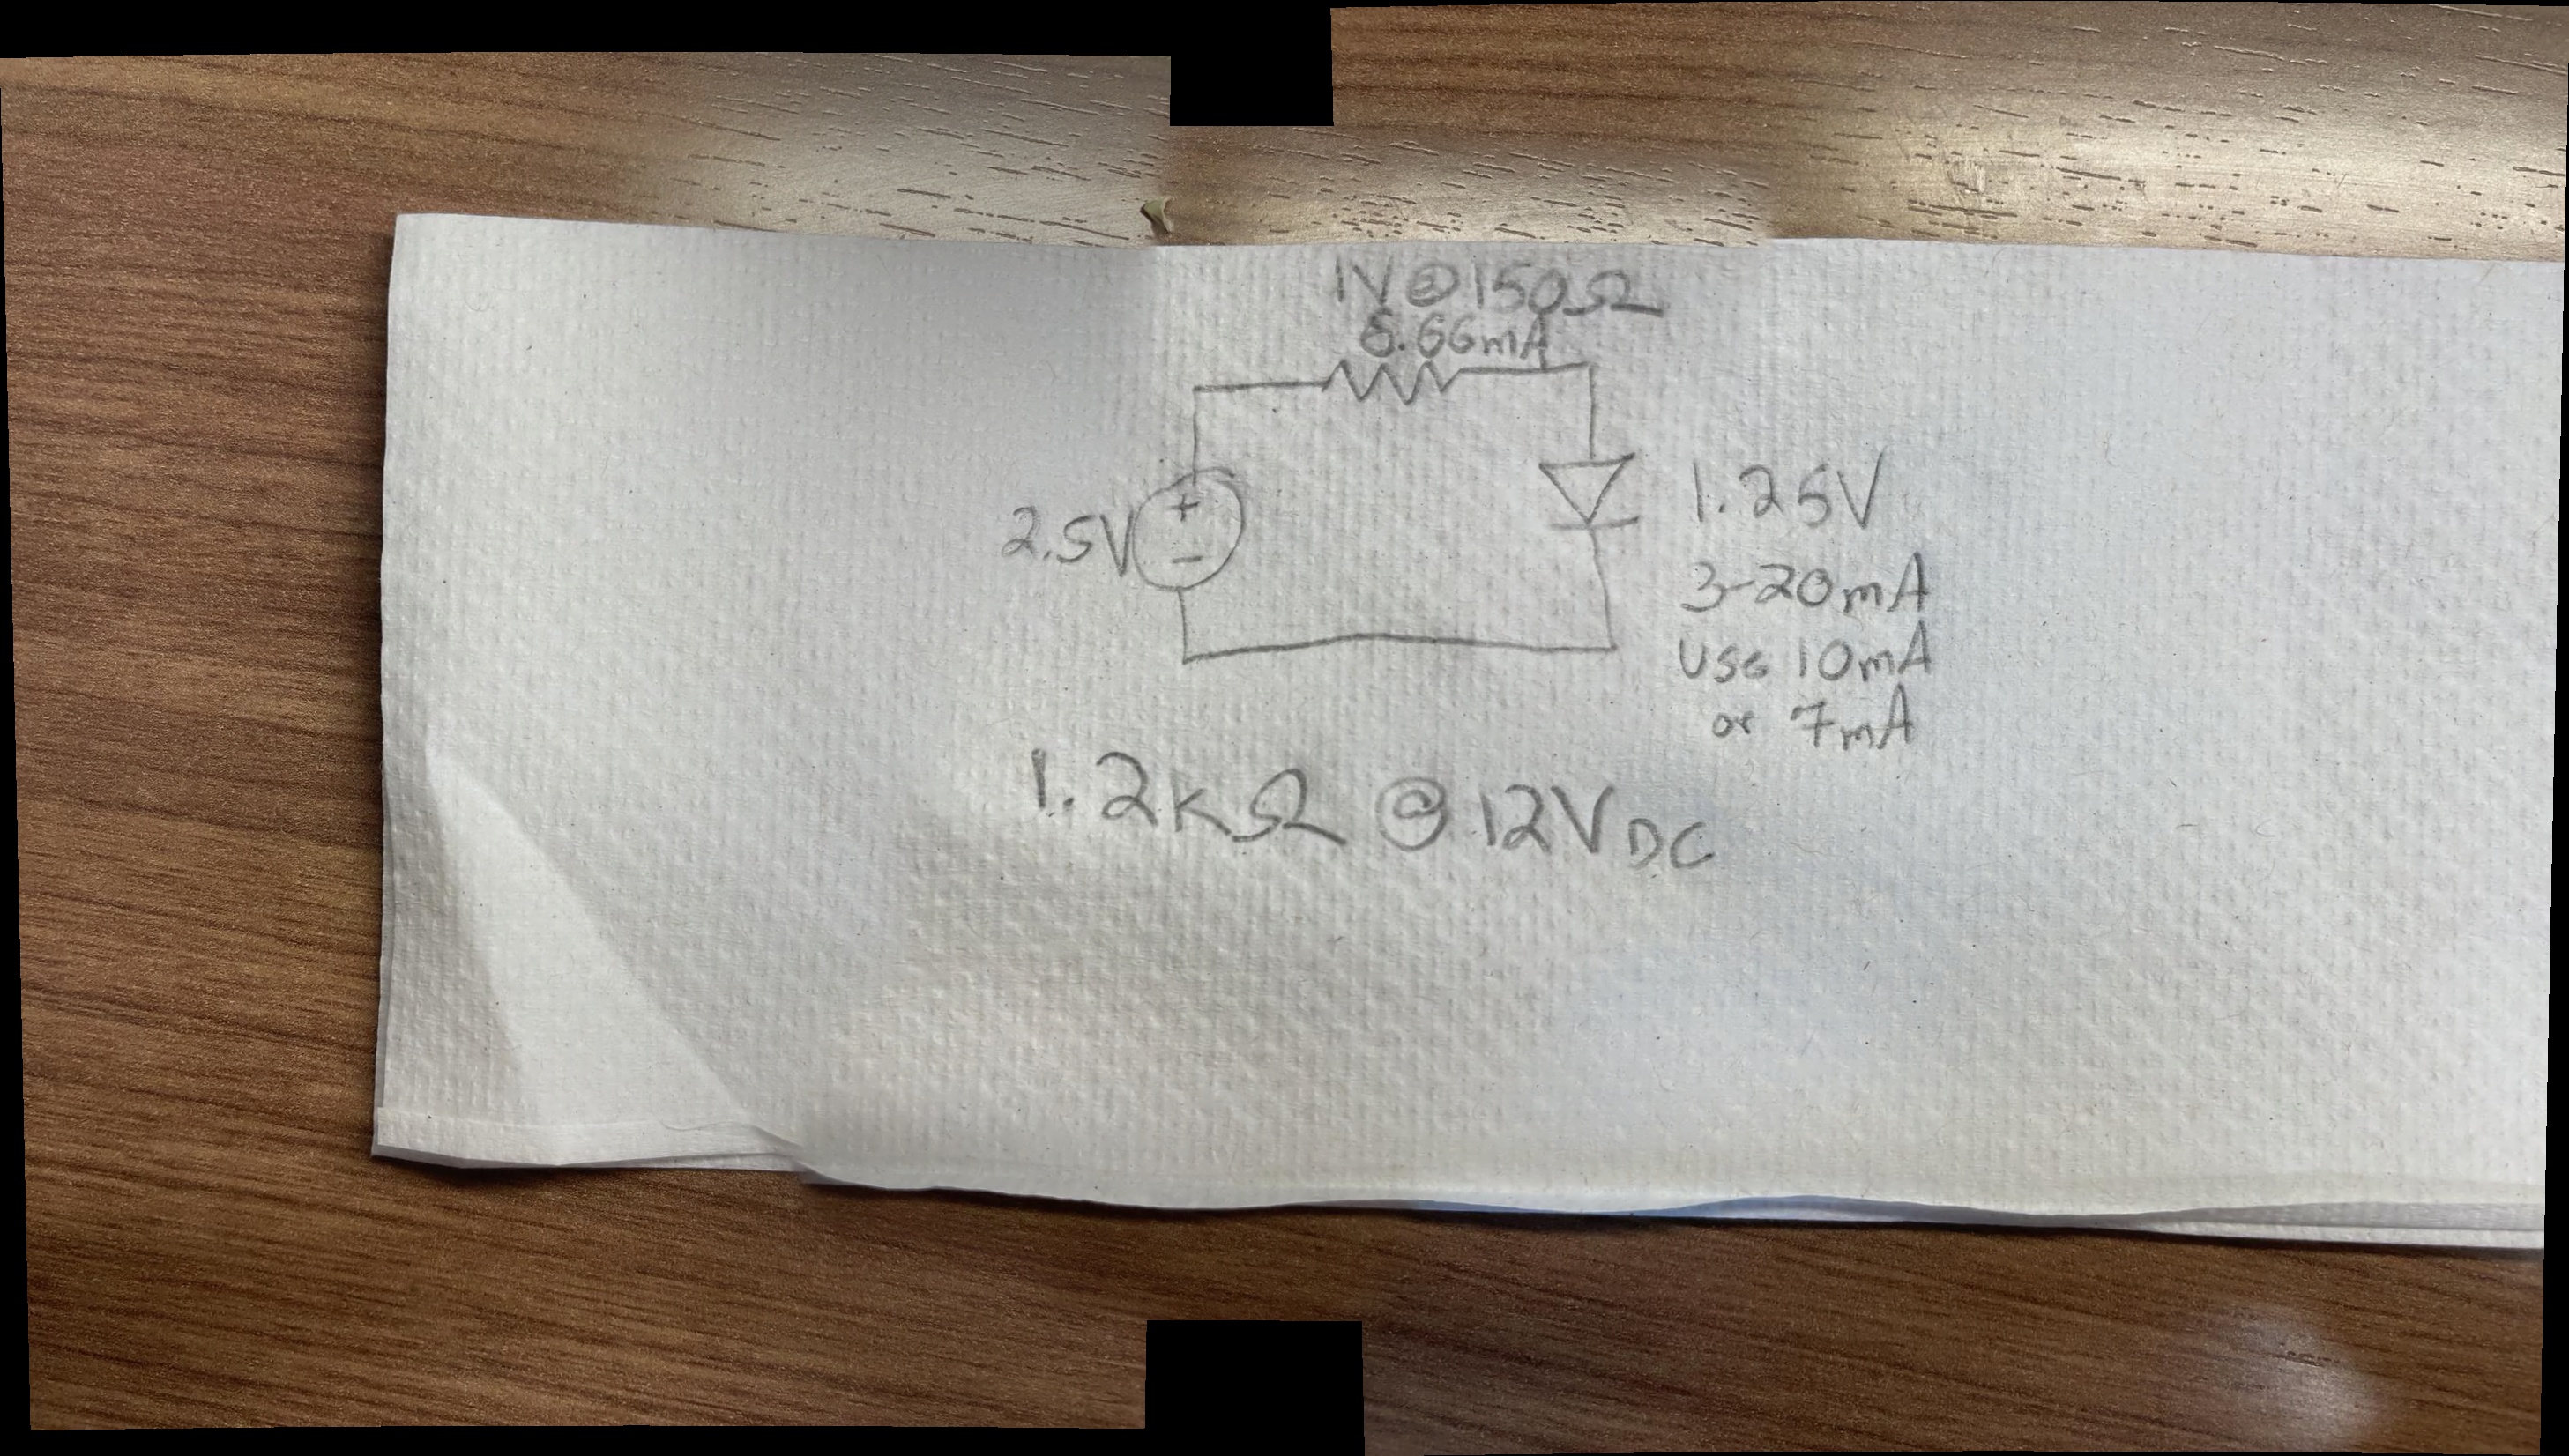 1V@150Ω
6.66mA
2.5V
+
-
1.25V
3-20mA
use 10mA
or 7mA
1.2kΩ @ 12VDC